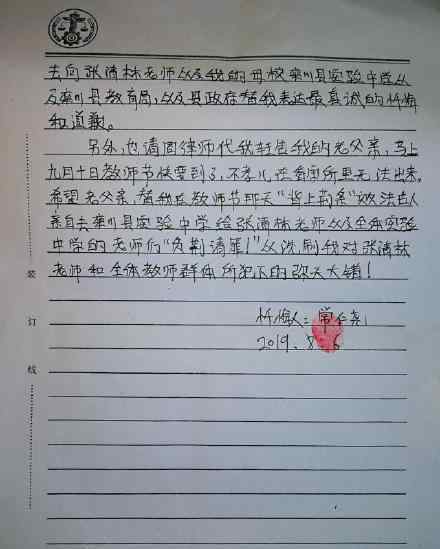 去向张清林老师以及我的母校栾川县实验中学以
及栾川县教育局，以及县政府替我表达最真诚的忏悔
和道歉。
另外，也请周律师代我转告我的老父亲，马上
九月十日教师节快要到了，不孝儿在看守所里无法出来。
希望老父亲，替我在教师节那天"背上荆条"效法古人
亲自去栾川县实验中学给张清林老师以及全体实验
中学的老师们"负荆请罪！"以洗刷我对张清林
老师和全体教师群体所犯下的弥天大错！
忏悔人：常仁尧
2019. 8. 6
装
订
线